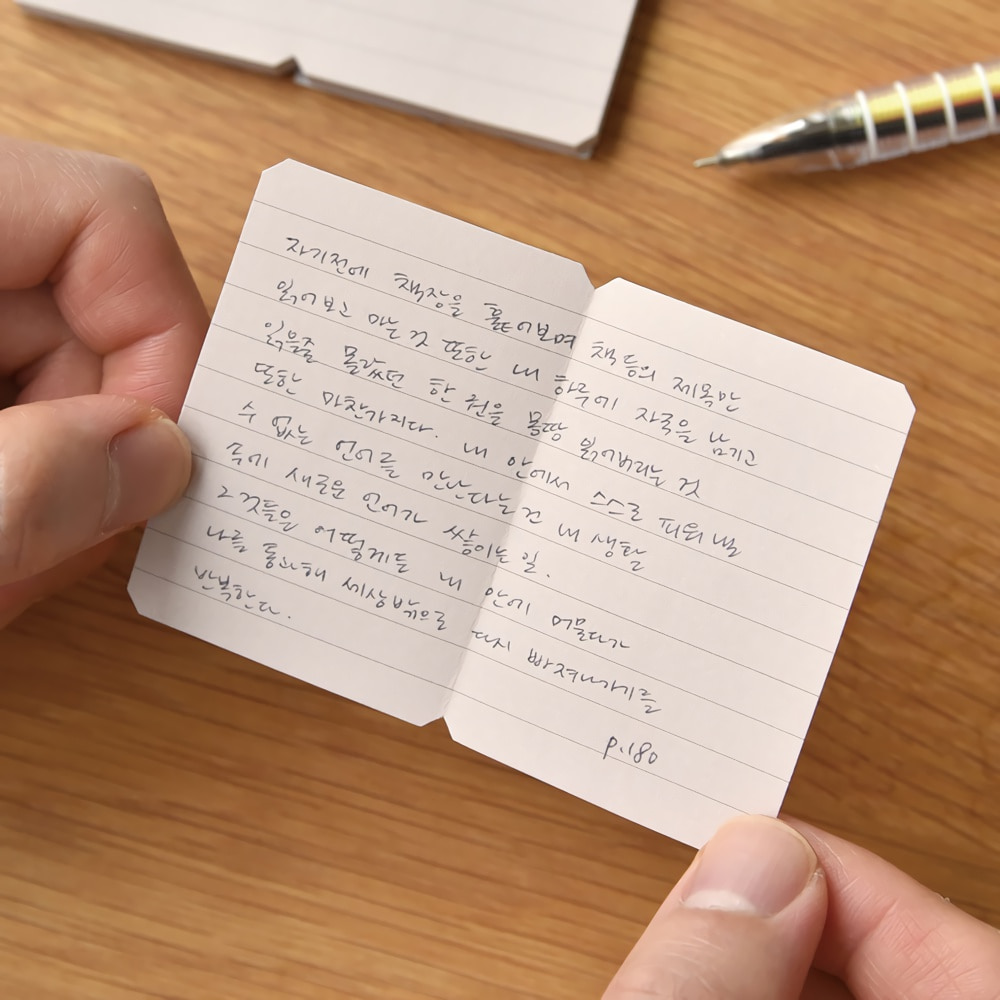 자기전에 책장을 훑어보며 책등의 제목만
읽어보고 마는 것 또한 내 하루에 자국을 남기고
읽은줄 몰랐던 한 권을 몽땅 읽어버리는 것
또한 마찬가지다. 내 안에서 스스로 피워 낼
수 없는 언어를 만난다는 건 내 생활
속에 새로운 언어가 쌓이는 일.
그것들은 어떻게든 내 안에 머물다가
나를 통과해 세상밖으로 다시 빠져나가기를
반복한다.
p.180